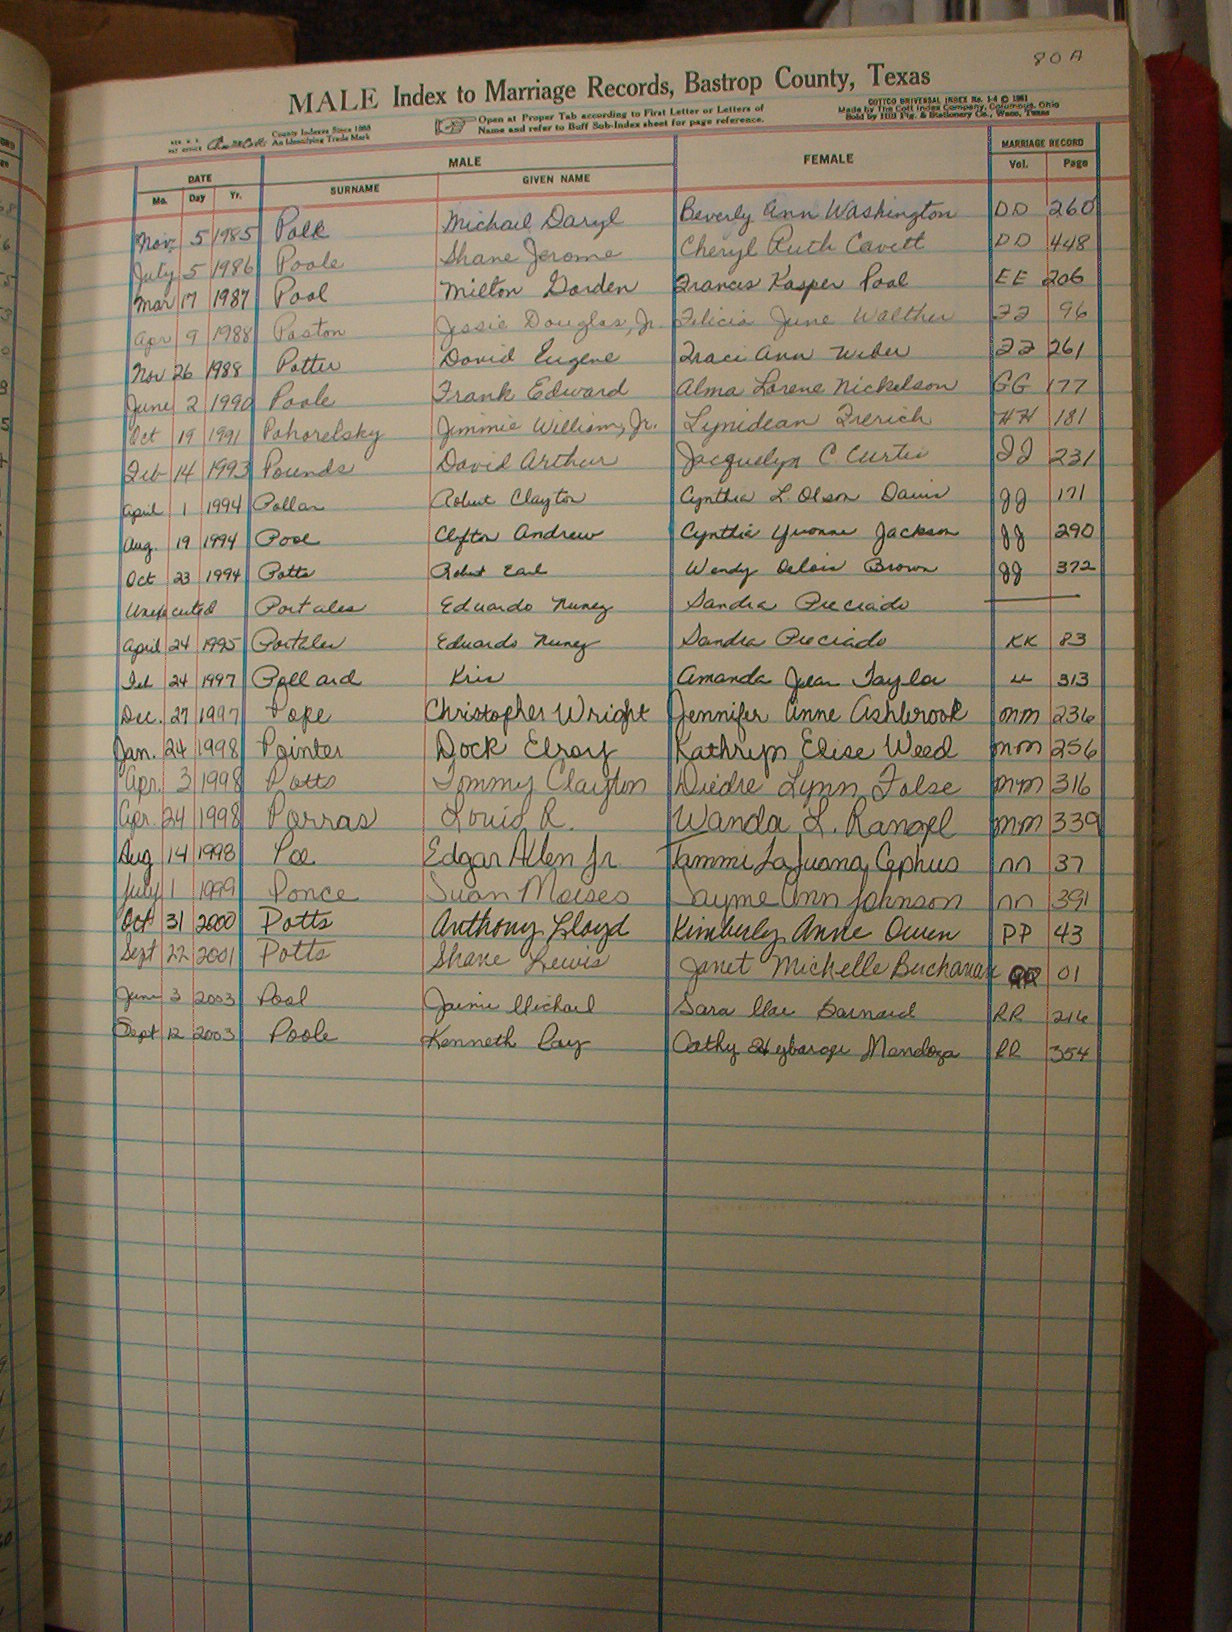 80 A
MALE Index to Marriage Records, Bastrop County, Texas
County Indexes Since 1888
An Identifying Trade Mark
Open at Proper Tab according to First Letter or Letters of
Name and refer to Buff Sub-Index sheet for page reference.
COTTCO UNIVERSAL INDEX No. 1-4 © 1961
Made by The Cott Index Company, Columbus, Ohio
Sold by Hill Ptg. & Stationery Co., Waco, Texas
DATE MALE FEMALE MARRIAGE RECORD
Mo. Day Yr. SURNAME GIVEN NAME Vol. Page
Nov. 5 1985 Polk Michail Daryl Beverly Ann Washington DD 260
July 5 1986 Poole Shane Jerome Cheryl Ruth Cavett DD 448
Mar 17 1987 Pool Milton Gorden Frances Kasper Pool EE 206
Apr 9 1988 Poston Jessie Douglas, Jr. Felicia June Walther FF 96
Nov 26 1988 Potter David Eugene Traci Ann Weber FF 261
June 2 1990 Poole Frank Edward Alma Lorene Nickelson GG 177
Oct 19 1991 Pohorelsky Jimmie William, Jr. Lynidean Frerich HH 181
Feb 14 1993 Pounds David Arthur Jacquelyn C. Curtis II 231
April 1 1994 Pollan Robert Clayton Cynthia L. Olson Davis JJ 171
Aug. 19 1994 Pool Clifton Andrew Cynthia Yvonne Jackson JJ 290
Oct 23 1994 Potts Robert Earl Wendy Delois Brown JJ 372
Unexecuted Portales Eduardo Nunez Sandra Preciado
April 24 1995 Portales Eduardo Nunez Sandra Preciado KK 83
Feb 24 1997 Pollard Kris Amanda Jean Taylor LL 313
Dec. 27 1997 Pope Christopher Wright Jennifer Anne Ashbrook MM 236
Jan. 24 1998 Pointer Dock Elroy Kathryn Elise Weed MM 256
Apr. 3 1998 Potts Tommy Clayton Diedre Lynn Folse MM 316
Apr. 24 1998 Porras Louis R. Wanda L. Rangel MM 339
Aug 14 1998 Poe Edgar Allen Jr Tammi LaJuana Cephus NN 37
July 1 1999 Ponce Juan Moises Jayme Ann Johnson NN 391
Oct 31 2000 Potts Anthony Lloyd Kimberly Anne Owen PP 43
Sept 22 2001 Potts Shane Lewis Janet Michelle Buchanan 01
June 3 2003 Pool Jaimi Michael Sara Mae Barnard RR 216
Sept 12 2003 Poole Kenneth Ray Cathy Mendoza RR 354